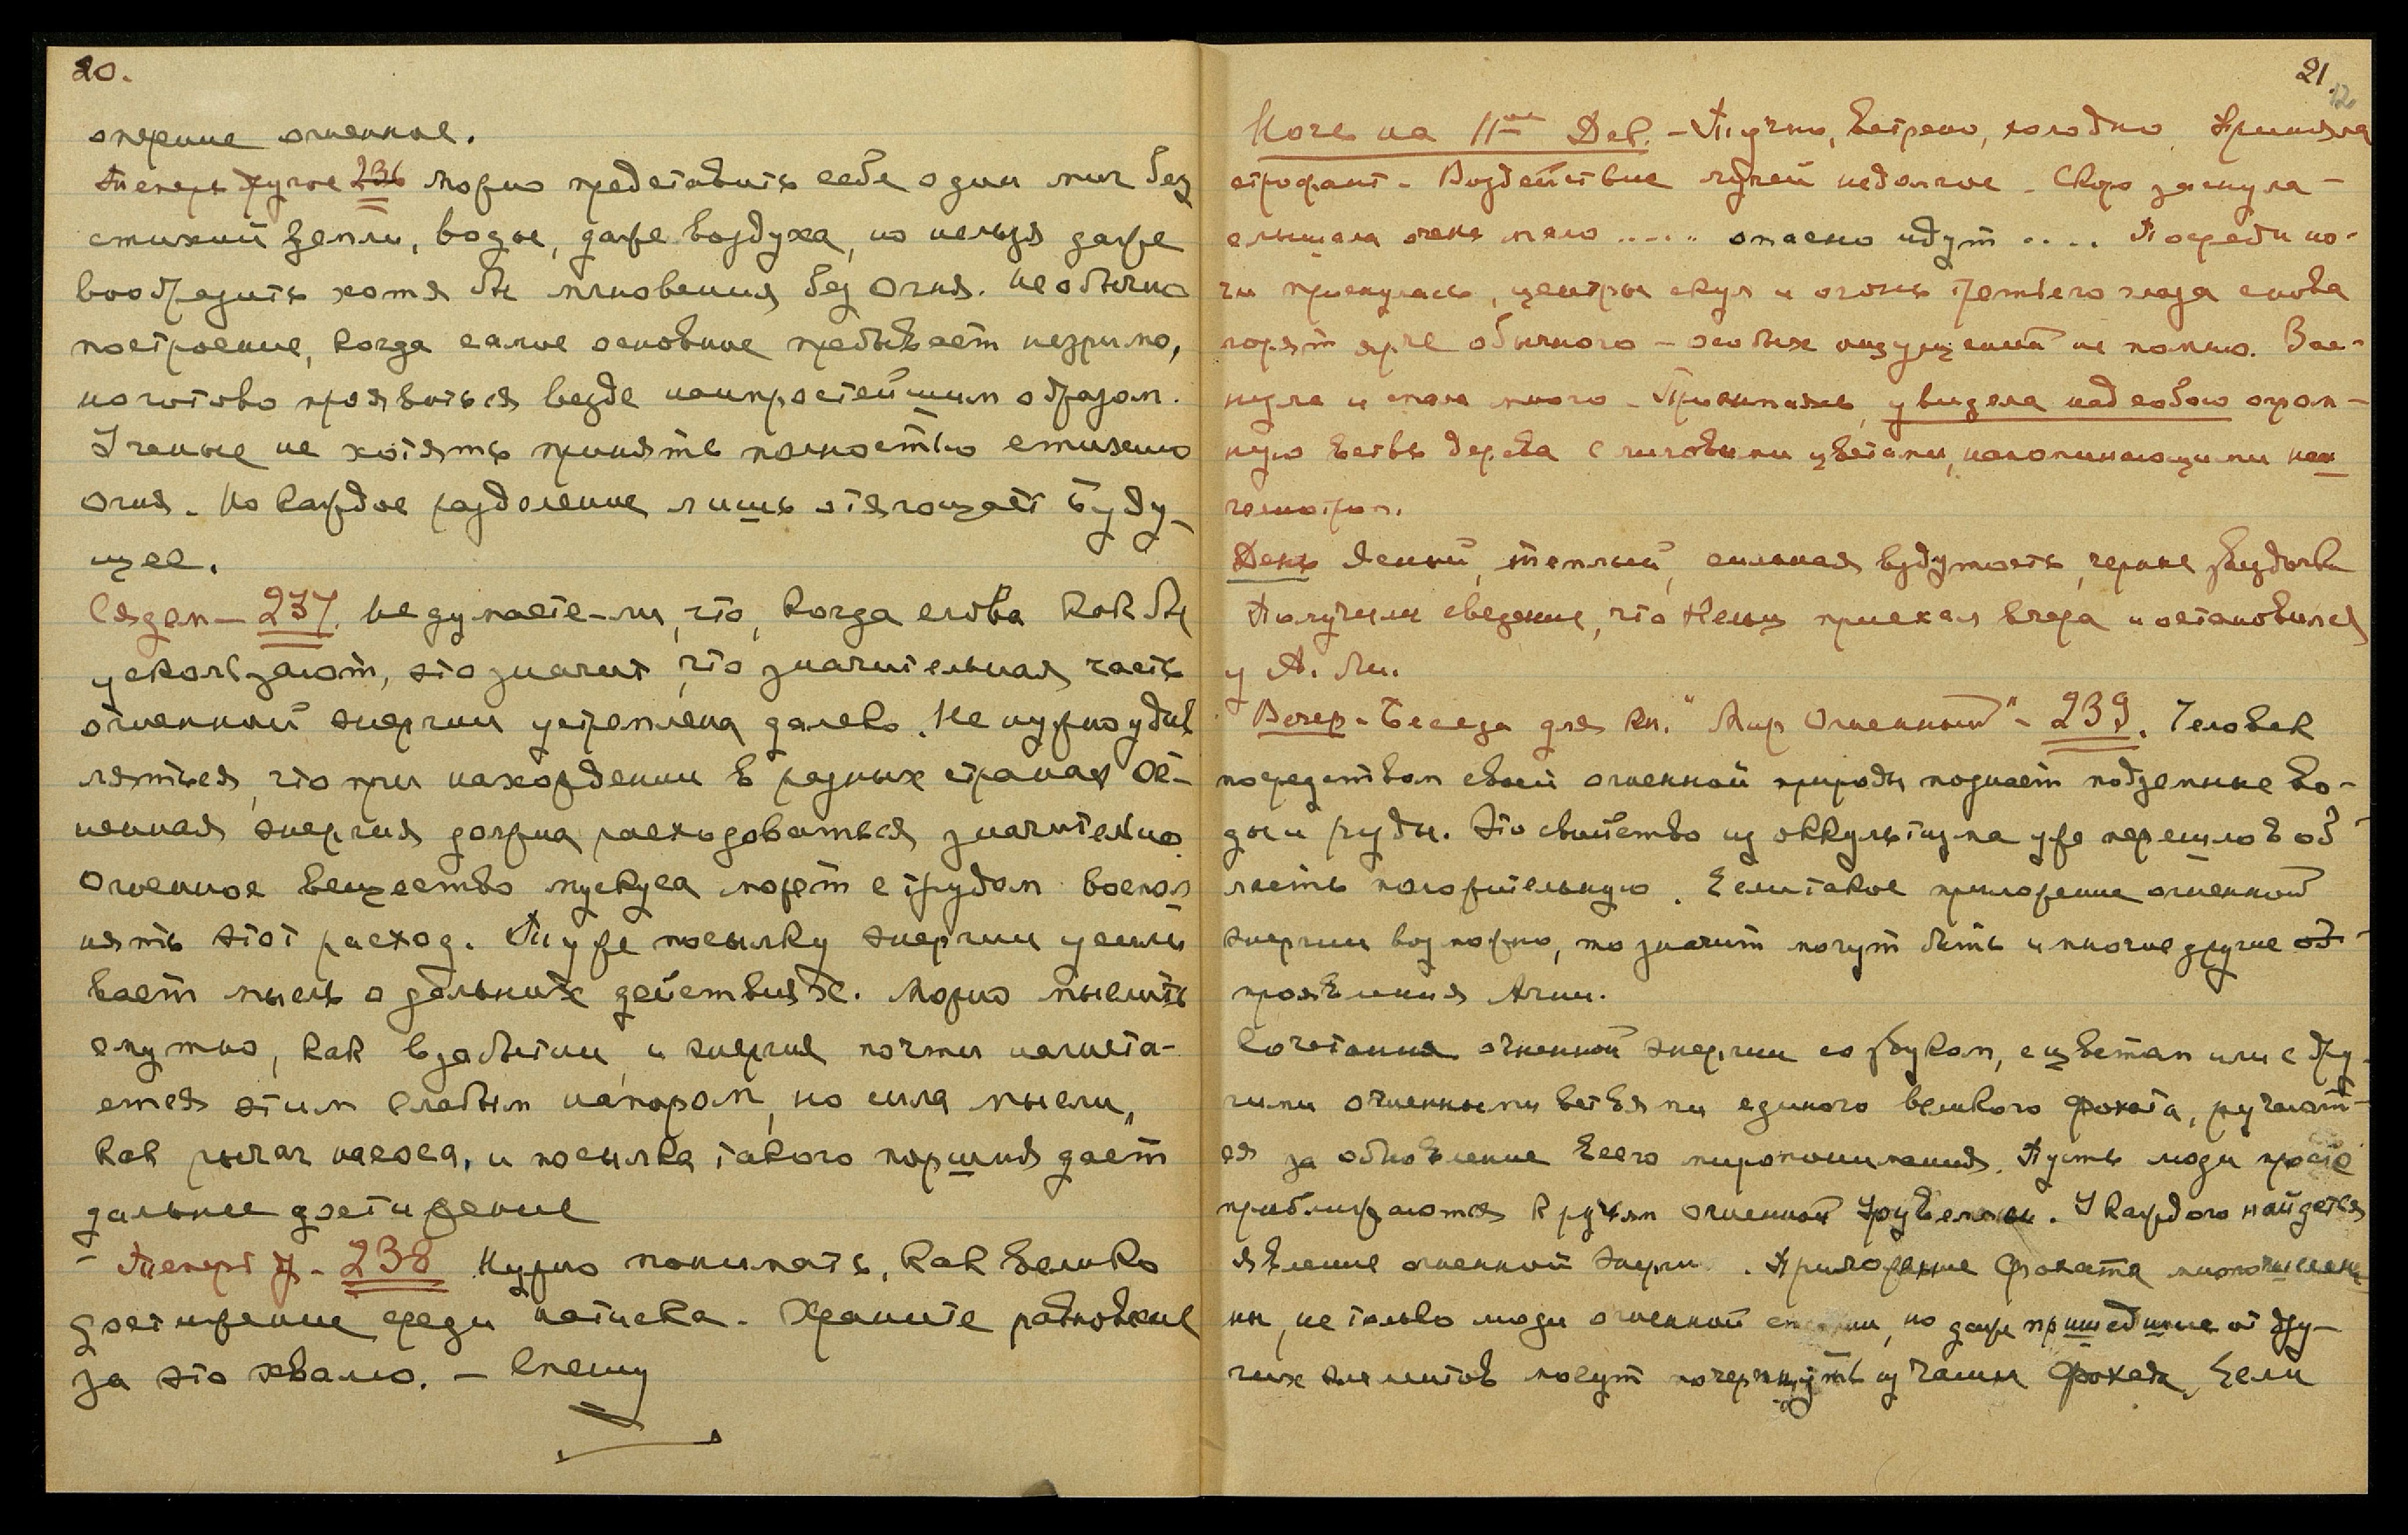 20.
оперние огненное.
Теперь другое 236 Можно представить себе один миг без
стихий земли, воды, даже воздуха, но нельзя даже
вообразить хотя бы мгновения без Огня. Необычно
построение, когда самое основное пребывает незримо,
но готово проявиться везде наипростейшим образом.
Ученые не хотять принять полностью стихию
Огня. Но каждое разделение лишь отягощает буду-
щее.
Сядем — 237. Не думаете-ли, что, когда слова как бы
ускользают, это значит, что значительная часть
огненной энергии устремлена далеко. Не нужно удив
ляться, что при нахождении в разных странах Ог-
ненная энергия должна расходоваться значительно.
Огненное вещество мускуса может с трудом воспол
нять этот расход. Ту же посылку энергии усили
вает мысль о дальних действиях. Можно мыслить
смутно, как в забытии, и энергия почти нагнета-
ется этим слабым напором, но сила мысли,
как рычаг насоса, и посылка такого поршня дает
дальнее достижение
— Теперь д. — 238 Нужно понимать, как велико
достижение среди натиска. Храните равновесие
за это хвалю. — Спешу
21.
12
Ночь на 11ое Дек. — Тучно, ветрено, холодно. Приняла
строфант. Воздействие лучей недолгое. Скоро заснула —
слышала очень мало ..... опасно идут .... Посреди но-
чи проснулась, центры скул и огонь третьего глаза снова
горят ярче обычного — особых ощущений не помню. Зас-
нула и спала много. Просыпаясь, увидела над собою огром-
ную ветвь дерева с лиловыми цветами, напоминающими
День Ясный, теплый, сильная вздутость, черные звездочки
Получили сведение, что Немц приехал вчера и остановился
у А. Ли.
Вечер — Беседа для кн. "Мир Огненный" — 239. Человек
посредством своей огненной природы познает подземные во-
ды и руды. Это свойство из оккультизма уже перешло в об-
ласть положительную. Если такое приложение огненной
энергии возможно, то значит могут быть и многие другие об-
проявления Агни.
Сочетания огненной энергии со звуком, с цветом или с дру-
гими огненными ветвями единого великого Фохата, ручают-
ся за обновление всего миропонимания. Пусть люди просто
приближаются к ручьям огненной Вселенной. У каждого найдется
явление огненной энергии. Приложение Фохата многочислен
ны, не только люди огненной стихии, но даже пришедшие от дру-
гих элементов могут почерпнуть из Чаши Фохата, Если